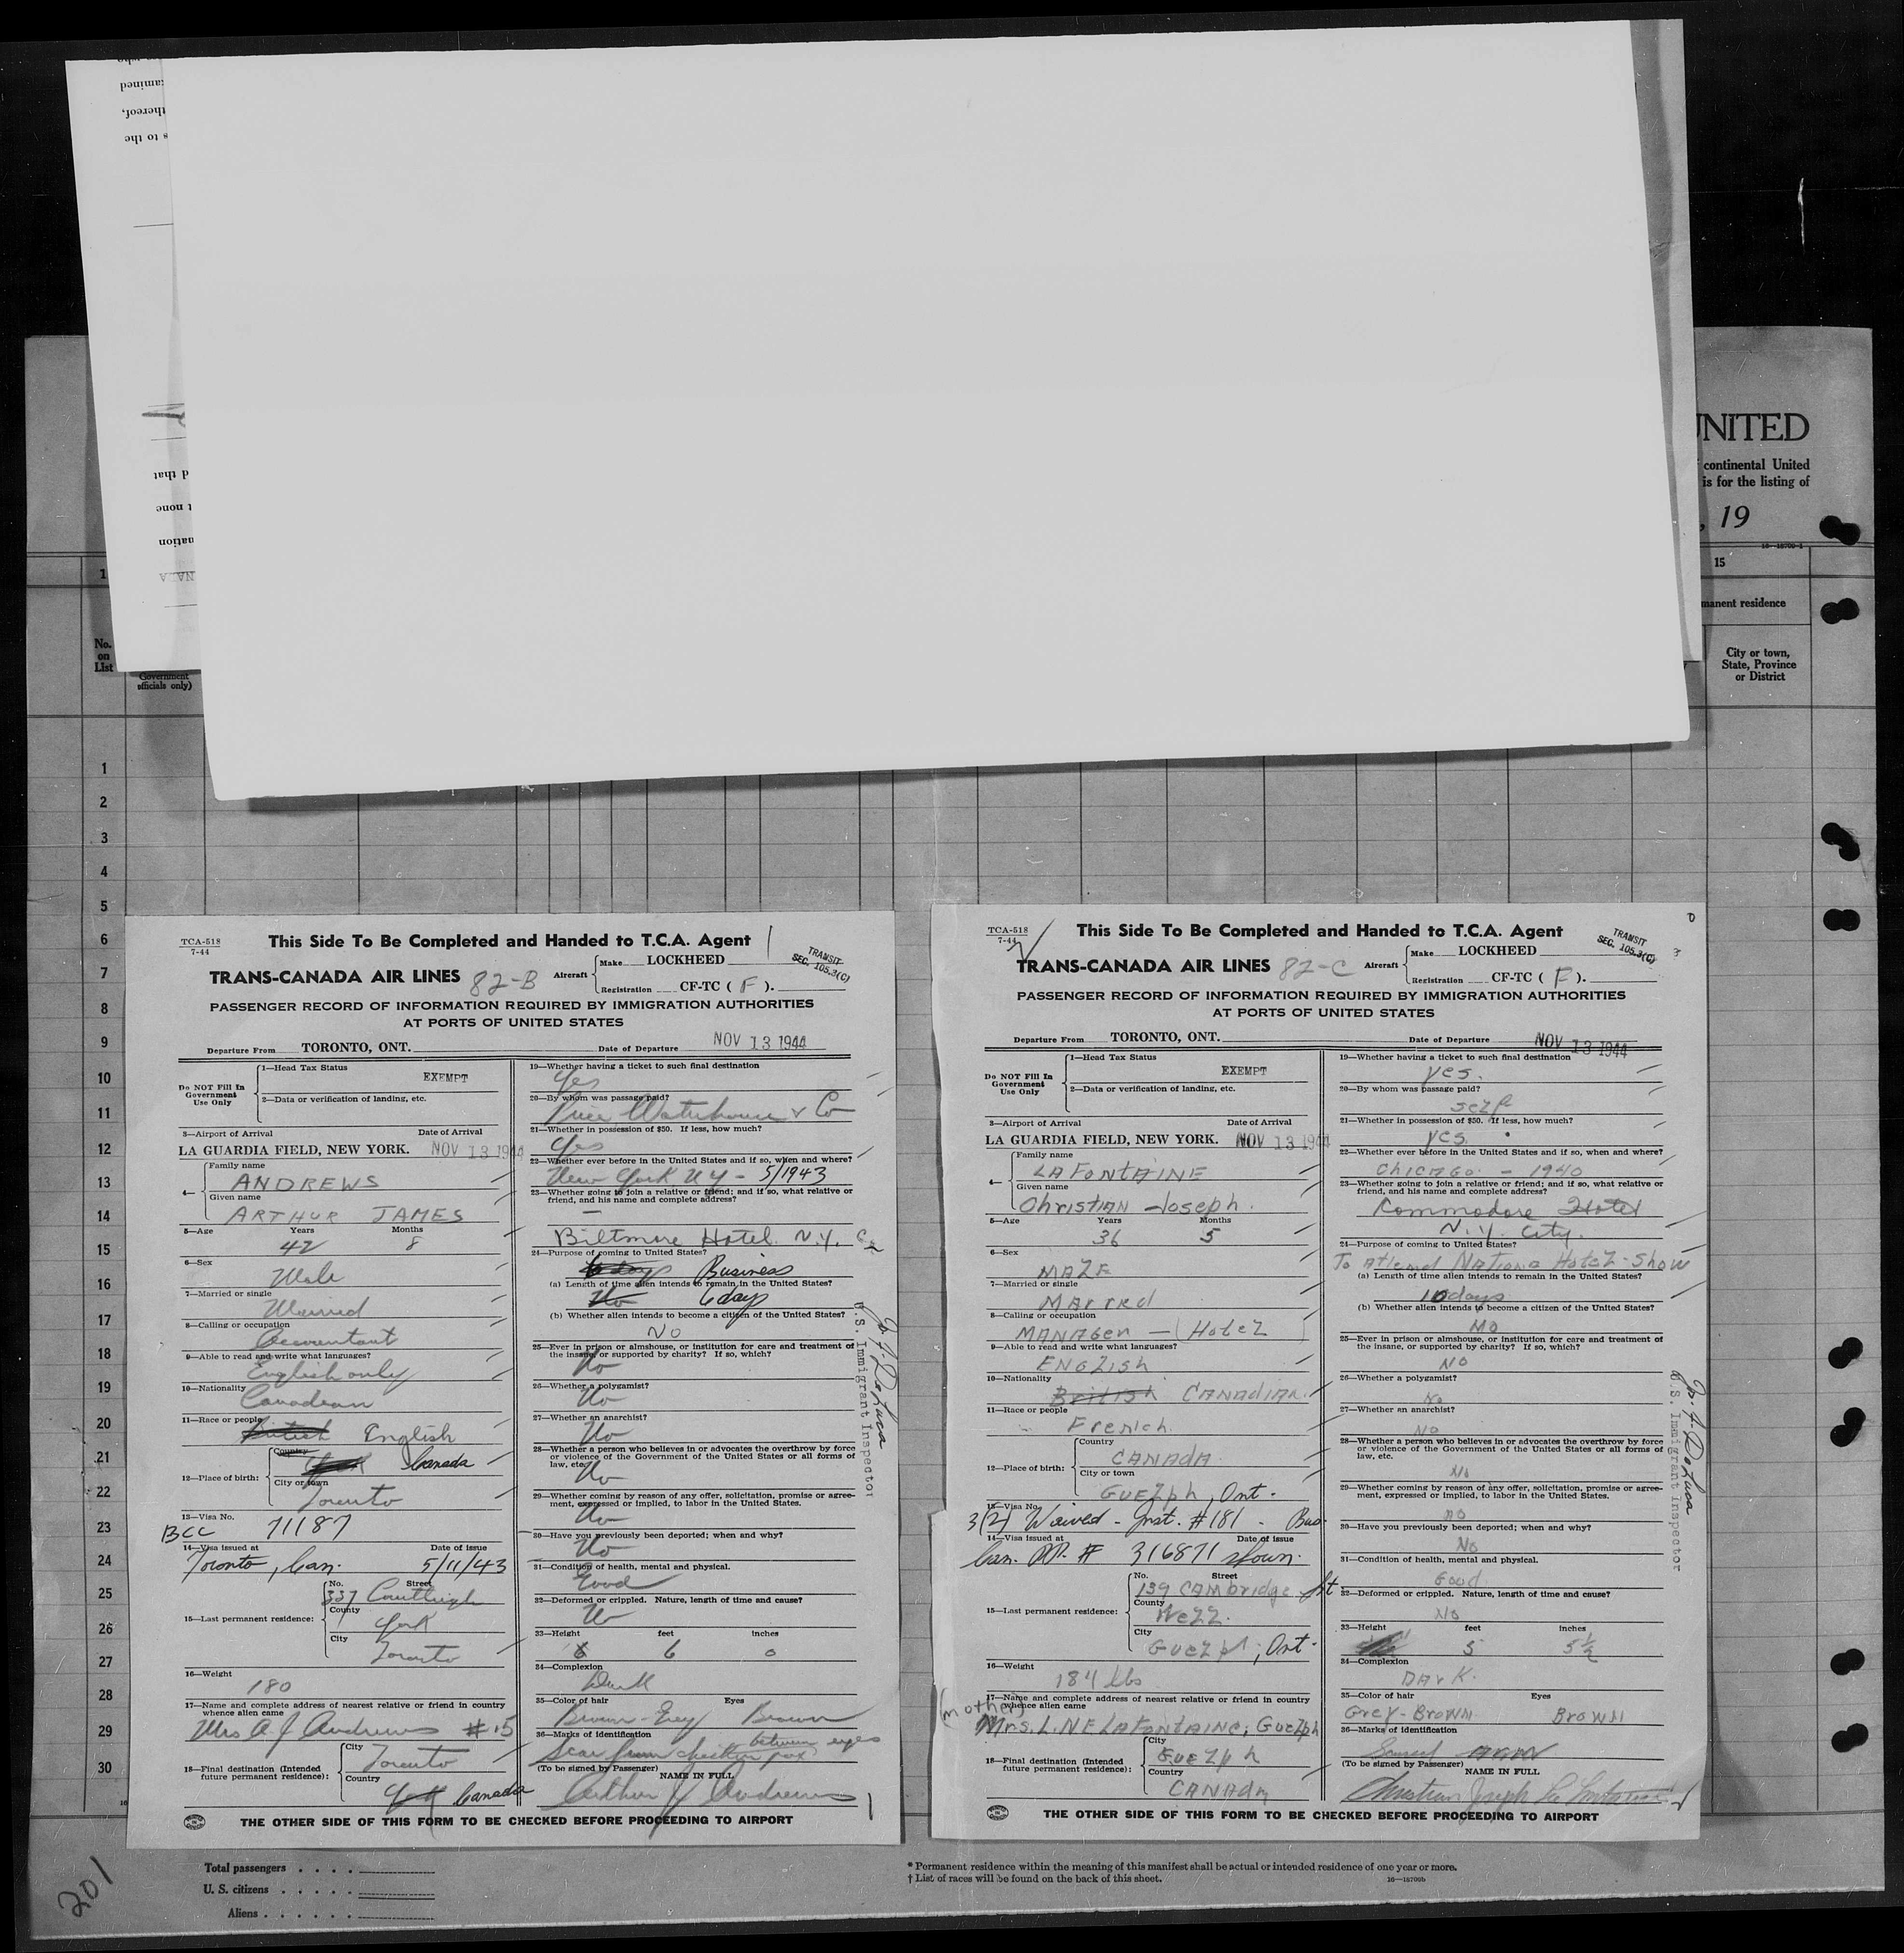 UNITED
continental United
is for the listing of
, 19
16—18700-1
15
manent residence
City or town,
State, Province
or District
No.
on
List
Government
officials only)
1
2
3
4
5
6
7
8
9
10
11
12
13
14
15
16
17
18
19
20
21
22
23
24
25
26
27
28
29
30
TCA-518
7-44
This Side To Be Completed and Handed to T.C.A. Agent
TRANSIT
SEC. 105.3(C)
TRANS-CANADA AIR LINES 82-B Aircraft Make LOCKHEED
Registration CF-TC ( F ).
PASSENGER RECORD OF INFORMATION REQUIRED BY IMMIGRATION AUTHORITIES
AT PORTS OF UNITED STATES
Departure From TORONTO, ONT. Date of Departure NOV 13 1944
Do NOT Fill In
Government
Use Only
1—Head Tax Status
EXEMPT
2—Data or verification of landing, etc.
3—Airport of Arrival Date of Arrival
LA GUARDIA FIELD, NEW YORK. NOV 13 1944
4— Family name
ANDREWS
Given name
ARTHUR JAMES
5—Age Years Months
42 8
6—Sex
Male
7—Married or single
Married
8—Calling or occupation
Accountant
9—Able to read and write what languages?
English only
10—Nationality
Canadian
11—Race or people
British English
12—Place of birth: Country
Canada
City or town
Toronto
13—Visa No.
BCC 71187
14—Visa issued at Date of issue
Toronto, Can. 5/11/43
15—Last permanent residence: No. Street
337 Courtleigh
County
York
City
Toronto
16—Weight
180
17—Name and complete address of nearest relative or friend in country
whence alien came
Mrs A. J Andrews #15
18—Final destination (Intended
future permanent residence): City
Toronto
Country
York Canada
19—Whether having a ticket to such final destination
Yes
20—By whom was passage paid?
Price Waterhouse & Co
21—Whether in possession of $50. If less, how much?
Yes
22—Whether ever before in the United States and if so, when and where?
New York N Y - 5/1943
23—Whether going to join a relative or friend; and if so, what relative or
friend, and his name and complete address?
—
Biltmore Hotel N.Y. C
24—Purpose of coming to United States?
6 days Business
(a) Length of time alien intends to remain in the United States?
No 6 days
(b) Whether alien intends to become a citizen of the United States?
No
25—Ever in prison or almshouse, or institution for care and treatment of
the insane, or supported by charity? If so, which?
No
26—Whether a polygamist?
No
27—Whether an anarchist?
No
28—Whether a person who believes in or advocates the overthrow by force
or violence of the Government of the United States or all forms of
law, etc.
No
29—Whether coming by reason of any offer, solicitation, promise or agree-
ment, expressed or implied, to labor in the United States.
No
30—Have you previously been deported; when and why?
No
31—Condition of health, mental and physical.
Good
32—Deformed or crippled. Nature, length of time and cause?
No
33—Height feet inches
6 6 0
34—Complexion
Dark
35—Color of hair Eyes
Brown-Grey Brown
36—Marks of identification
Scar from chicken pox between eyes
(To be signed by Passenger) NAME IN FULL
Arthur J Andrews
THE OTHER SIDE OF THIS FORM TO BE CHECKED BEFORE PROCEEDING TO AIRPORT
U.S. Immigrant Inspector
TCA-518
7-44
This Side To Be Completed and Handed to T.C.A. Agent
TRANSIT
SEC. 105.3(C)
TRANS-CANADA AIR LINES 82-C Aircraft Make LOCKHEED
Registration CF-TC ( F ).
PASSENGER RECORD OF INFORMATION REQUIRED BY IMMIGRATION AUTHORITIES
AT PORTS OF UNITED STATES
Departure From TORONTO, ONT. Date of Departure NOV 13 1944
Do NOT Fill In
Government
Use Only
1—Head Tax Status
EXEMPT
2—Data or verification of landing, etc.
3—Airport of Arrival Date of Arrival
LA GUARDIA FIELD, NEW YORK. NOV 13 1944
4— Family name
LAFONTAINE
Given name
Christian Joseph.
5—Age Years Months
36 5
6—Sex
MALE
7—Married or single
Marred
8—Calling or occupation
MANAGER — (Hotel)
9—Able to read and write what languages?
ENGLISH
10—Nationality
British CANADIAN.
11—Race or people
French.
12—Place of birth: Country
CANADA.
City or town
GUELPH, Ont.
13—Visa No.
3(2) Waived - Inst. #181 - Bus.
14—Visa issued at Date of issue
Can. PP. # 316871 shown.
15—Last permanent residence: No. Street
139 CAMbridge St
County
Well.
City
Guelph, Ont.
16—Weight
184 lbs
17—Name and complete address of nearest relative or friend in country
whence alien came
(mother)
Mrs. L. NE LAFONTAINE, Guelph
18—Final destination (Intended
future permanent residence): City
Guelph
Country
CANADA
19—Whether having a ticket to such final destination
yes.
20—By whom was passage paid?
self
21—Whether in possession of $50. If less, how much?
yes.
22—Whether ever before in the United States and if so, when and where?
Chicago. - 1940
23—Whether going to join a relative or friend; and if so, what relative or
friend, and his name and complete address?
Commodore Hotel
N.Y. City.
24—Purpose of coming to United States?
To Attend Nationa Hotel-Show
(a) Length of time alien intends to remain in the United States?
10 days
(b) Whether alien intends to become a citizen of the United States?
No
25—Ever in prison or almshouse, or institution for care and treatment of
the insane, or supported by charity? If so, which?
NO
26—Whether a polygamist?
No
27—Whether an anarchist?
NO
28—Whether a person who believes in or advocates the overthrow by force
or violence of the Government of the United States or all forms of
law, etc.
No
29—Whether coming by reason of any offer, solicitation, promise or agree-
ment, expressed or implied, to labor in the United States.
no
30—Have you previously been deported; when and why?
No
31—Condition of health, mental and physical.
Good
32—Deformed or crippled. Nature, length of time and cause?
No
33—Height feet inches
5 5½
34—Complexion
DARK.
35—Color of hair Eyes
Grey-Brown Brown
36—Marks of identification
(To be signed by Passenger) NAME IN FULL
Christian Joseph La Fontaine
THE OTHER SIDE OF THIS FORM TO BE CHECKED BEFORE PROCEEDING TO AIRPORT
U.S. Immigrant Inspector
Total passengers . . . .
U. S. citizens . . . . .
Aliens . . . . . .
* Permanent residence within the meaning of this manifest shall be actual or intended residence of one year or more.
† List of races will be found on the back of this sheet.
16—18700b
201